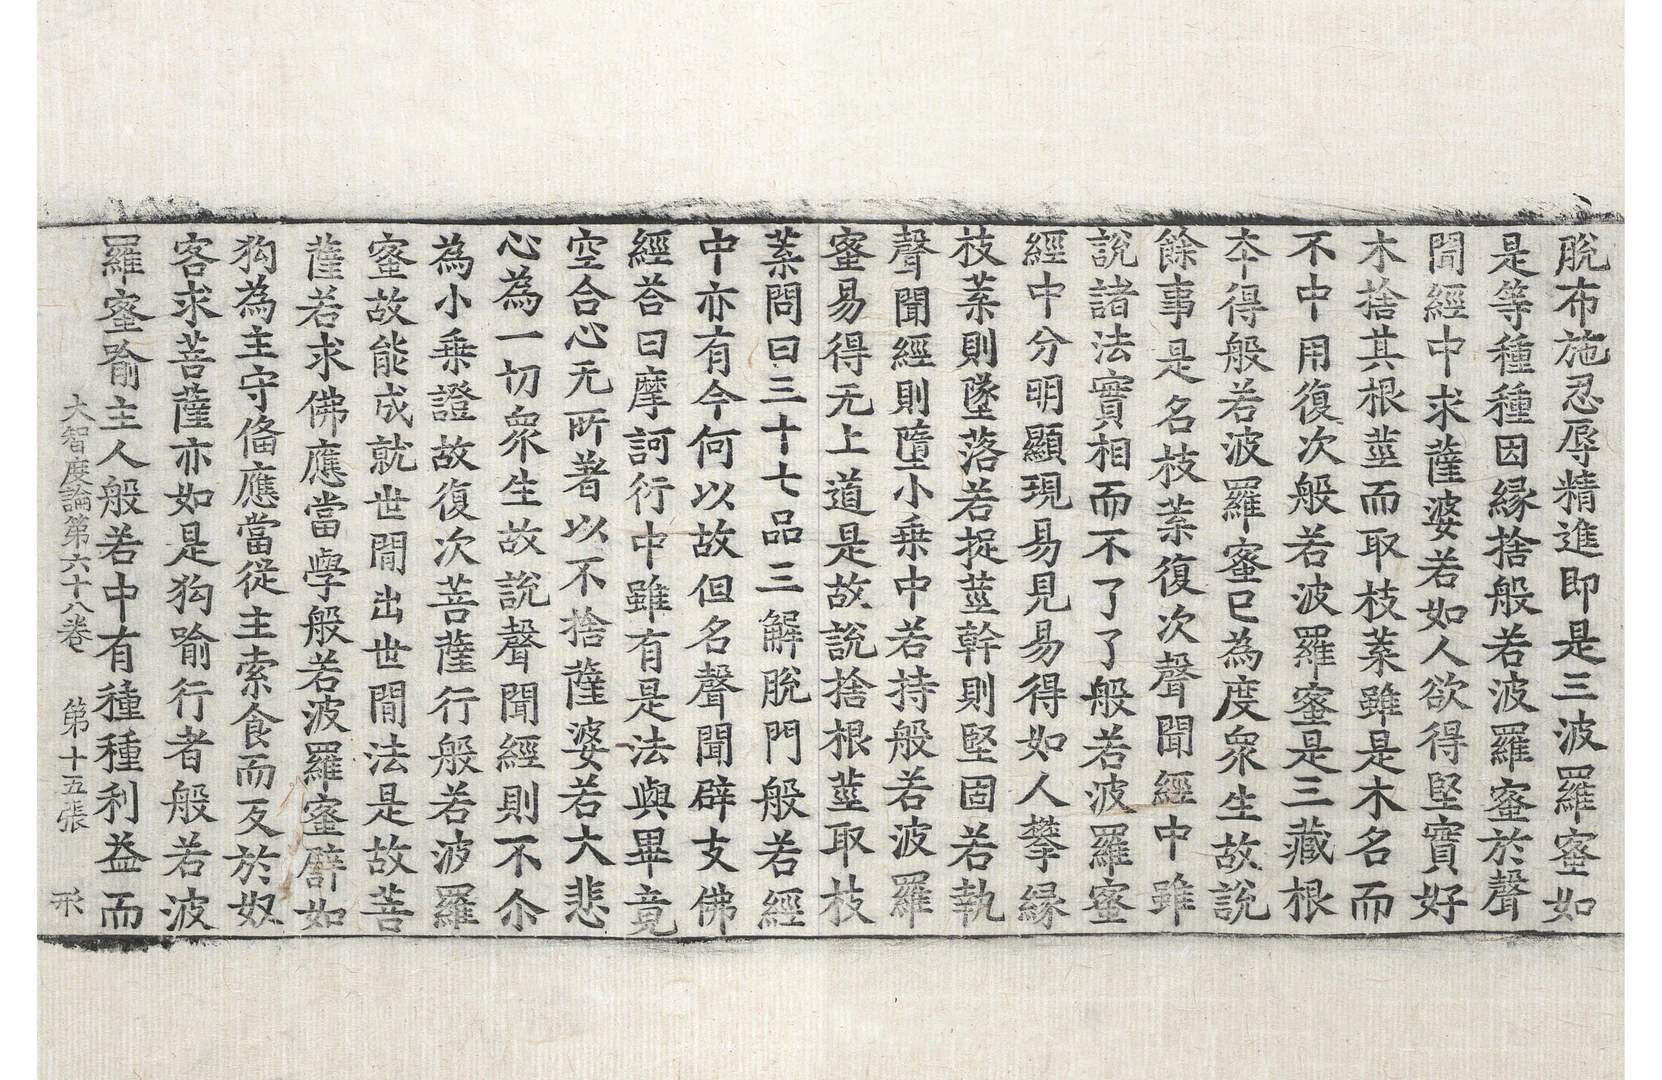 脫布施忍辱精進即是三波羅蜜如
是等種種因緣捨般若波羅蜜於聲
聞經中求薩婆若如人欲得堅實好
木捨其根莖而取枝葉雖是木名而
不中用復次般若波羅蜜是三藏根
本得般若波羅蜜已為度眾生故說
餘事是名枝葉復次聲聞經中雖
說諸法實相而不了了般若波羅蜜
經中分明顯現易見易得如人攀緣
枝葉則墜落若捉莖幹則堅固若執
聲聞經則墮小乘中若持般若波羅
蜜易得无上道是故說捨根莖取枝
葉問曰三十七品三解脫門般若經
中亦有今何以故但名聲聞辟支佛
經荅曰摩訶衍中雖有是法與畢竟
空合心无所著以不捨薩婆若大悲
心為一切眾生故說聲聞經則不尒
為小乘證故復次菩薩行般若波羅
蜜故能成就世間出世間法是故菩
薩若求佛應當學般若波羅蜜譬如
狗為主守俻應當從主索食而反於奴
客求菩薩亦如是狗喻行者般若波
羅蜜喻主人般若中有種種利益而
大智度論第六十八卷 第十五張 形